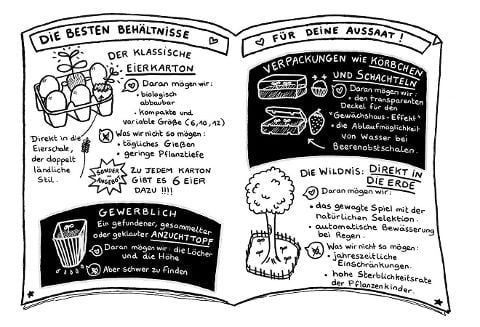 DIE BESTEN BEHÄLTNISSE
DER KLASSISCHE
EIERKARTON
Daran mögen wir:
• biologisch
abbaubar
• Kompakte und
variable Größe (6, 10, 12)
Direkt in die
Eierschale,
der doppelt
ländliche
Stil.
Was wir nicht so mögen:
• tägliches Gießen
• geringe Pflanztiefe
SONDER
ANGEBOT
ZU JEDEM KARTON
GIBT ES 6 EIER
DAZU !!!!
GEWERBLICH
Ein gefundener, gesammelter
oder geklauter ANZUCHTTOPF
Daran mögen wir: die Löcher
und die Höhe
Aber schwer zu finden
FÜR DEINE AUSSAAT!
VERPACKUNGEN WIE KÖRBCHEN
UND SCHACHTELN
Daran mögen wir:
• den transparenten
Deckel für den
"Gewächshaus-Effekt"
• die Ablaufmöglichkeit
von Wasser bei
Beerenobstschalen.
DIE WILDNIS: DIREKT IN
DIE ERDE
Daran mögen wir:
• das gewagte Spiel mit der
natürlichen Selektion.
• automatische Bewässerung
bei Regen.
Was wir nicht so mögen:
• jahreszeitliche
Einschränkungen.
• hohe Sterblichkeitsrate
der Pflanzenkinder.